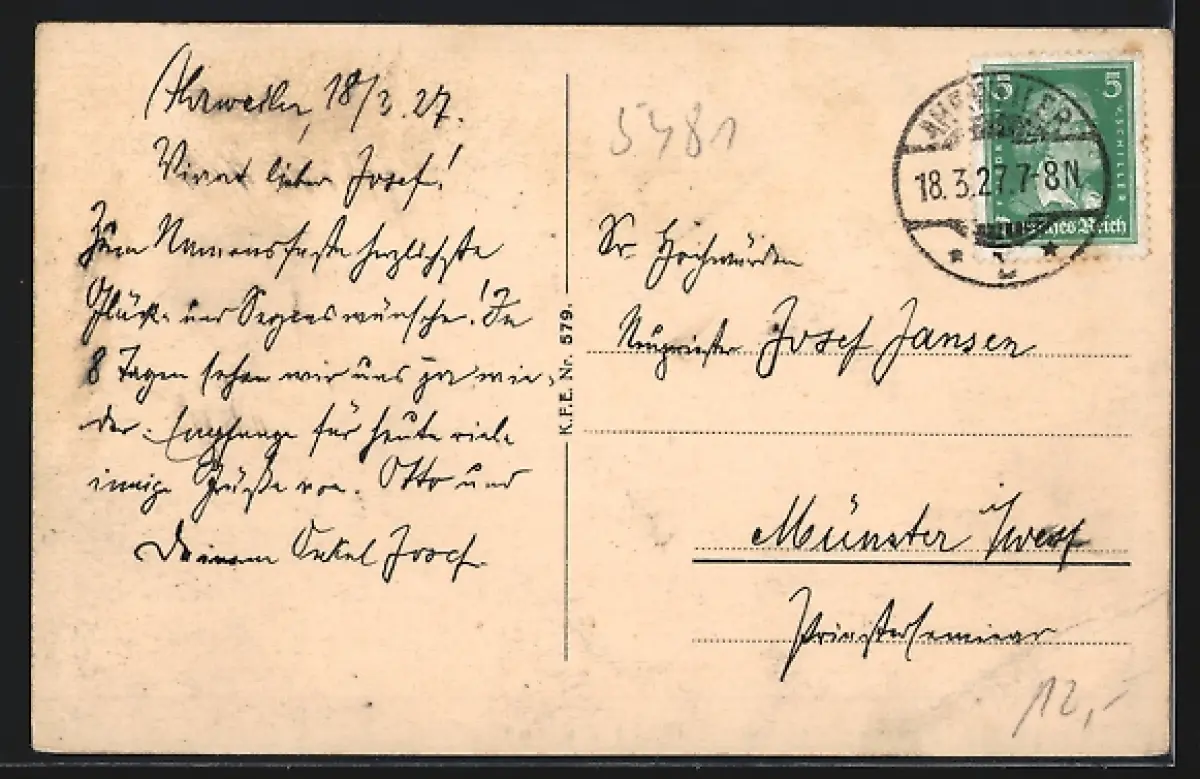 Ahrweiler, 18/3.27.
Vivat lieber Josef!
Zum Namensfeste herzlichste
Glück- und Segenswünsche! In
8 Tagen sehen wir uns ja wie-
der. Empfange für heute viele
innige Grüße von Otto und
Deinem Onkel Josef.
K.F.E. Nr. 579.
5481
5 5
F. V. SCHILLER
Deutsches Reich
AHRWEILER
18.3.27.7-8N
Sr. Hochwürden
Neupriester Josef Jansen
Münster i/Westf
Priesterseminar
12,-